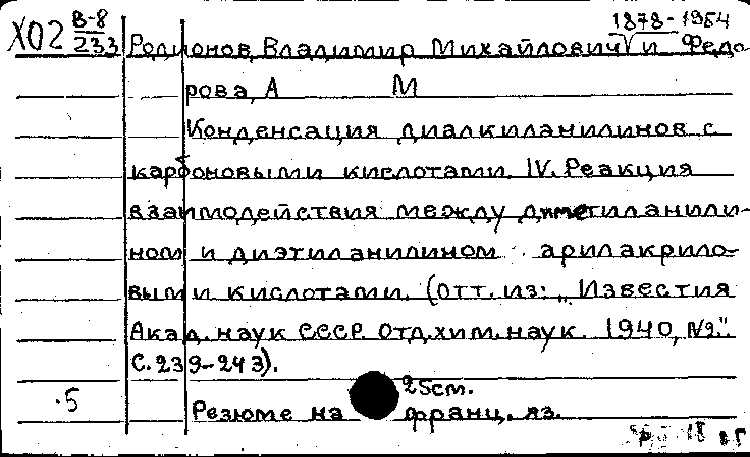 Х02 В-8/233 1878-1954
Родионов, Владимир Михайлович и Федо-
рова, А М
Конденсация диалкиланилинов с
карбоновыми кислотами. IV. Реакция
взаимодействия между диметиланили-
ном и диэтиланилином арилакрило-
выми кислотами. (Отт. из: "Известия
Акад. наук СССР. Отд. хим. наук. 1940, №2."
С. 239-243).
25см.
.5 Резюме на франц. яз.